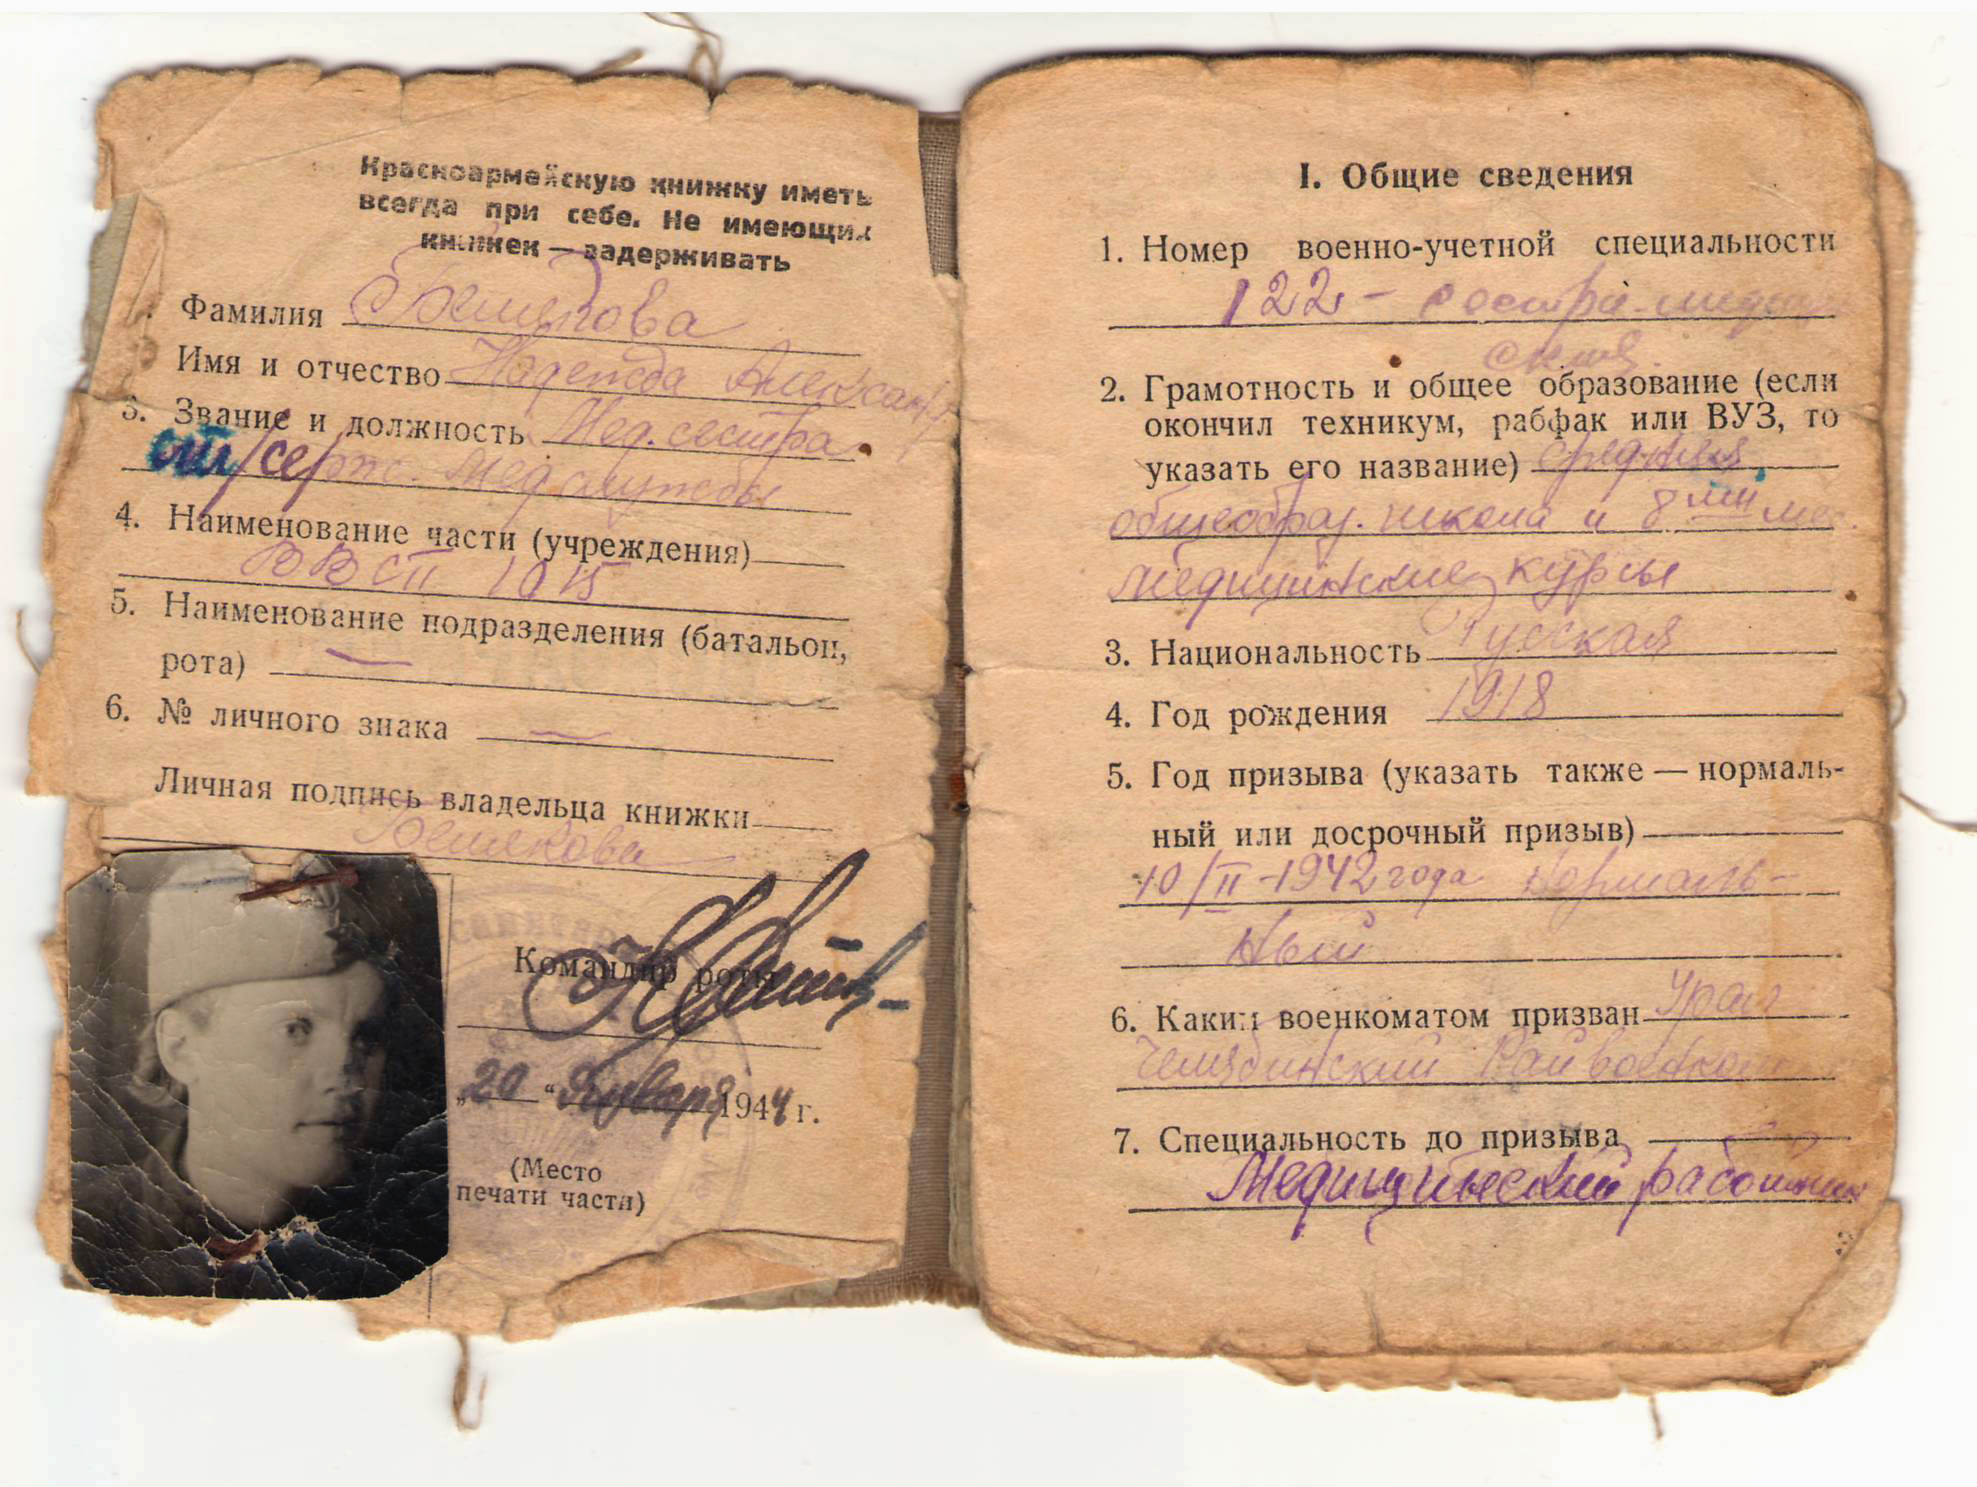 Красноармейскую книжку иметь
всегда при себе. Не имеющих
книжек — задерживать
Фамилия
Имя и отчество Надежда Александр
3. Звание и должность Мед. сестра
ст/серж. медслужбы
4. Наименование части (учреждения)
5. Наименование подразделения (батальон,
рота) —
6. № личного знака —
Личная подпись владельца книжки
Командир роты
„20“ Января 1944 г.
(Место
печати части)
I. Общие сведения
1. Номер военно-учетной специальности
122 – сестра-медицин
ская.
2. Грамотность и общее образование (если
окончил техникум, рабфак или ВУЗ, то
указать его название) средняя
общеобраз. школа и 8ми мес.
медицинские курсы
3. Национальность Русская
4. Год рождения 1918
5. Год призыва (указать также — нормаль-
ный или досрочный призыв)
10/II–1942 года Нормаль-
ный
6. Каким военкоматом призван Урал
Челябинский Райвоенком
7. Специальность до призыва
Медицинский работник